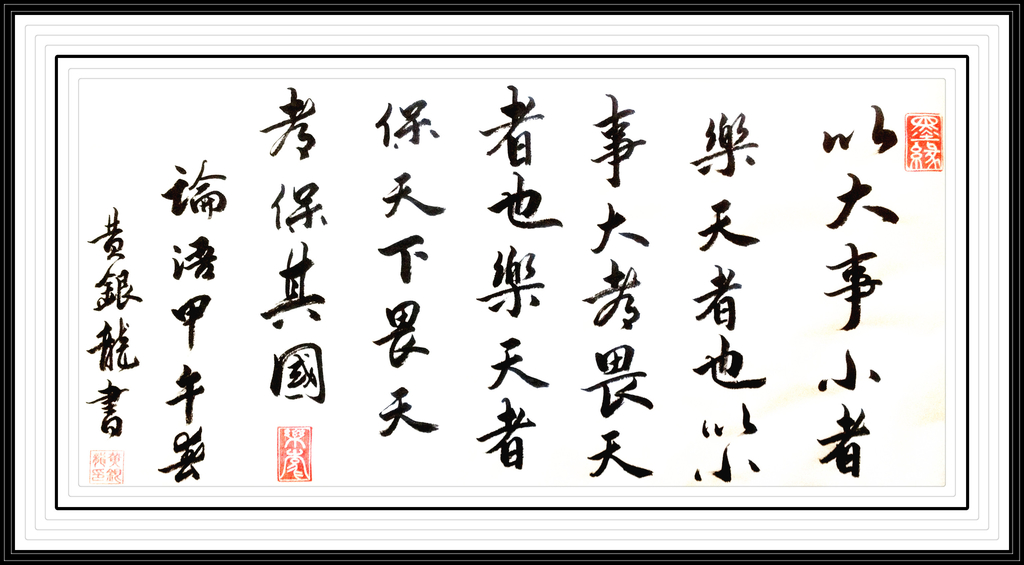 墨緣
以大事小者
樂天者也以小
事大者畏天
者也樂天者
保天下畏天
者保其國
論語甲午春
黃銀龍書
黃銀龍印